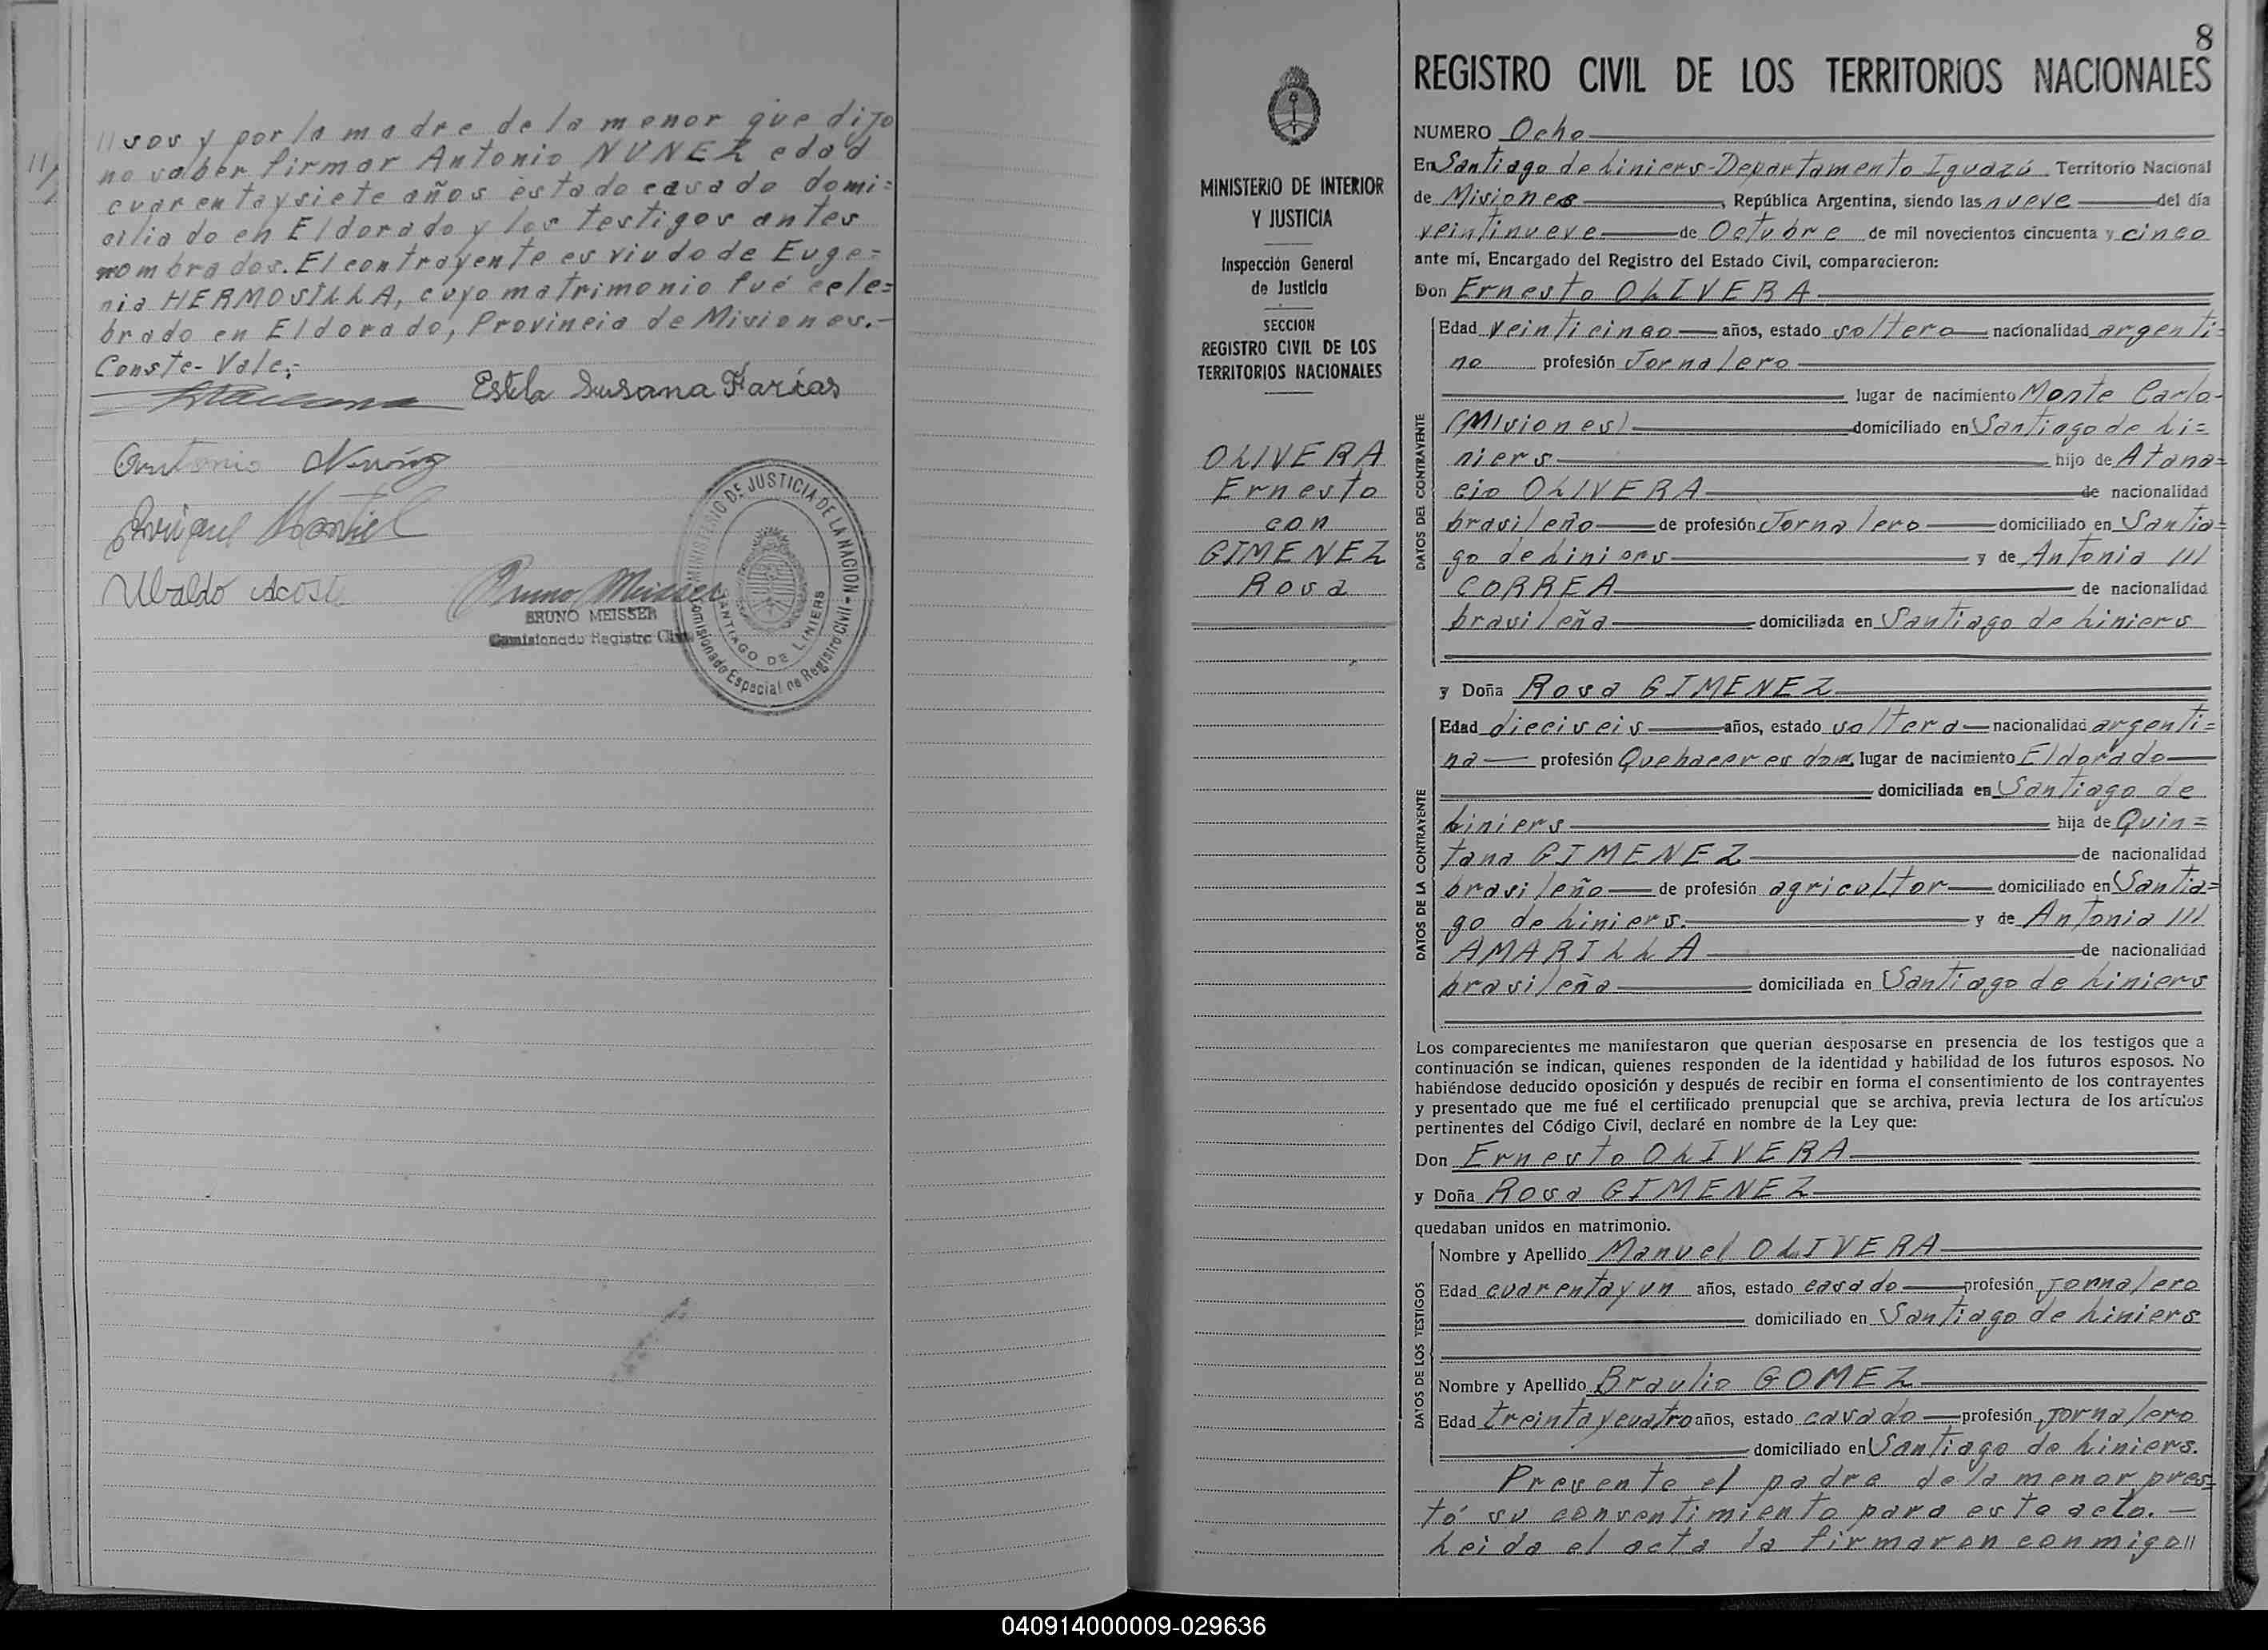 //sos y por la madre de la menor que dijo
no saber firmar Antonio NUNEZ edad
cuarentaysiete años estado casado domi=
ciliado en Eldorado y los testigos antes
nombrados. El contrayente es viudo de Euge=
nia HERMOSILLA, cuyo matrimonio fué cele=
brado en Eldorado, Provincia de Misiones.-
Conste- Vale:-
Estela Susana Farías
Antonio
Enrique Montiel
Ubaldo Acosta
Bruno Meisser
BRUNO MEISSER
Comisionado Registro Civil
MINISTERIO DE JUSTICIA DE LA NACION
Comisionado Especial de Registro Civil
SANTIAGO DE LINIERS
MINISTERIO DE INTERIOR
Y JUSTICIA
Inspección General
de Justicia
SECCION
REGISTRO CIVIL DE LOS
TERRITORIOS NACIONALES
OLIVERA
Ernesto
con
GIMENEZ
Rosa
8
REGISTRO CIVIL DE LOS TERRITORIOS NACIONALES
NUMERO Ocho
En Santiago de Liniers-Departamento Iguazú Territorio Nacional
de Misiones, República Argentina, siendo las nueve del día
veintinueve de Octubre de mil novecientos cincuenta y cinco
ante mí, Encargado del Registro del Estado Civil, comparecieron:
Don Ernesto OLIVERA
DATOS DEL CONTRAYENTE
Edad veinticinco años, estado soltero nacionalidad argenti=
no profesión Jornalero
lugar de nacimiento Monte Carlo-
(Misiones) domiciliado en Santiago de Li=
niers hijo de Atana=
cio OLIVERA de nacionalidad
brasileño de profesión Jornalero domiciliado en Santia=
go de Liniers y de Antonia ///
CORREA de nacionalidad
brasileña domiciliada en Santiago de Liniers
y Doña Rosa GIMENEZ
DATOS DE LA CONTRAYENTE
Edad dieciseis años, estado soltera nacionalidad argenti=
na profesión Quehaceres dom. lugar de nacimiento Eldorado
domiciliada en Santiago de
Liniers hija de Quin=
tana GIMENEZ de nacionalidad
brasileño de profesión agricultor domiciliado en Santia=
go de Liniers. y de Antonia ///
AMARILLA de nacionalidad
brasileña domiciliada en Santiago de Liniers
Los comparecientes me manifestaron que querían desposarse en presencia de los testigos que a
continuación se indican, quienes responden de la identidad y habilidad de los futuros esposos. No
habiéndose deducido oposición y después de recibir en forma el consentimiento de los contrayentes
y presentado que me fué el certificado prenupcial que se archiva, previa lectura de los artículos
pertinentes del Código Civil, declaré en nombre de la Ley que:
Don Ernesto OLIVERA
y Doña Rosa GIMENEZ
quedaban unidos en matrimonio.
DATOS DE LOS TESTIGOS
Nombre y Apellido Manuel OLIVERA
Edad cuarentayun años, estado casado profesión jornalero
domiciliado en Santiago de Liniers
Nombre y Apellido Braulio GOMEZ
Edad treintaycuatro años, estado casado profesión jornalero
domiciliado en Santiago de Liniers.
Presente el padre de la menor pres=
tó su consentimiento para este acto.-
Leida el acta la firmaron conmigo//
040914000009-029636